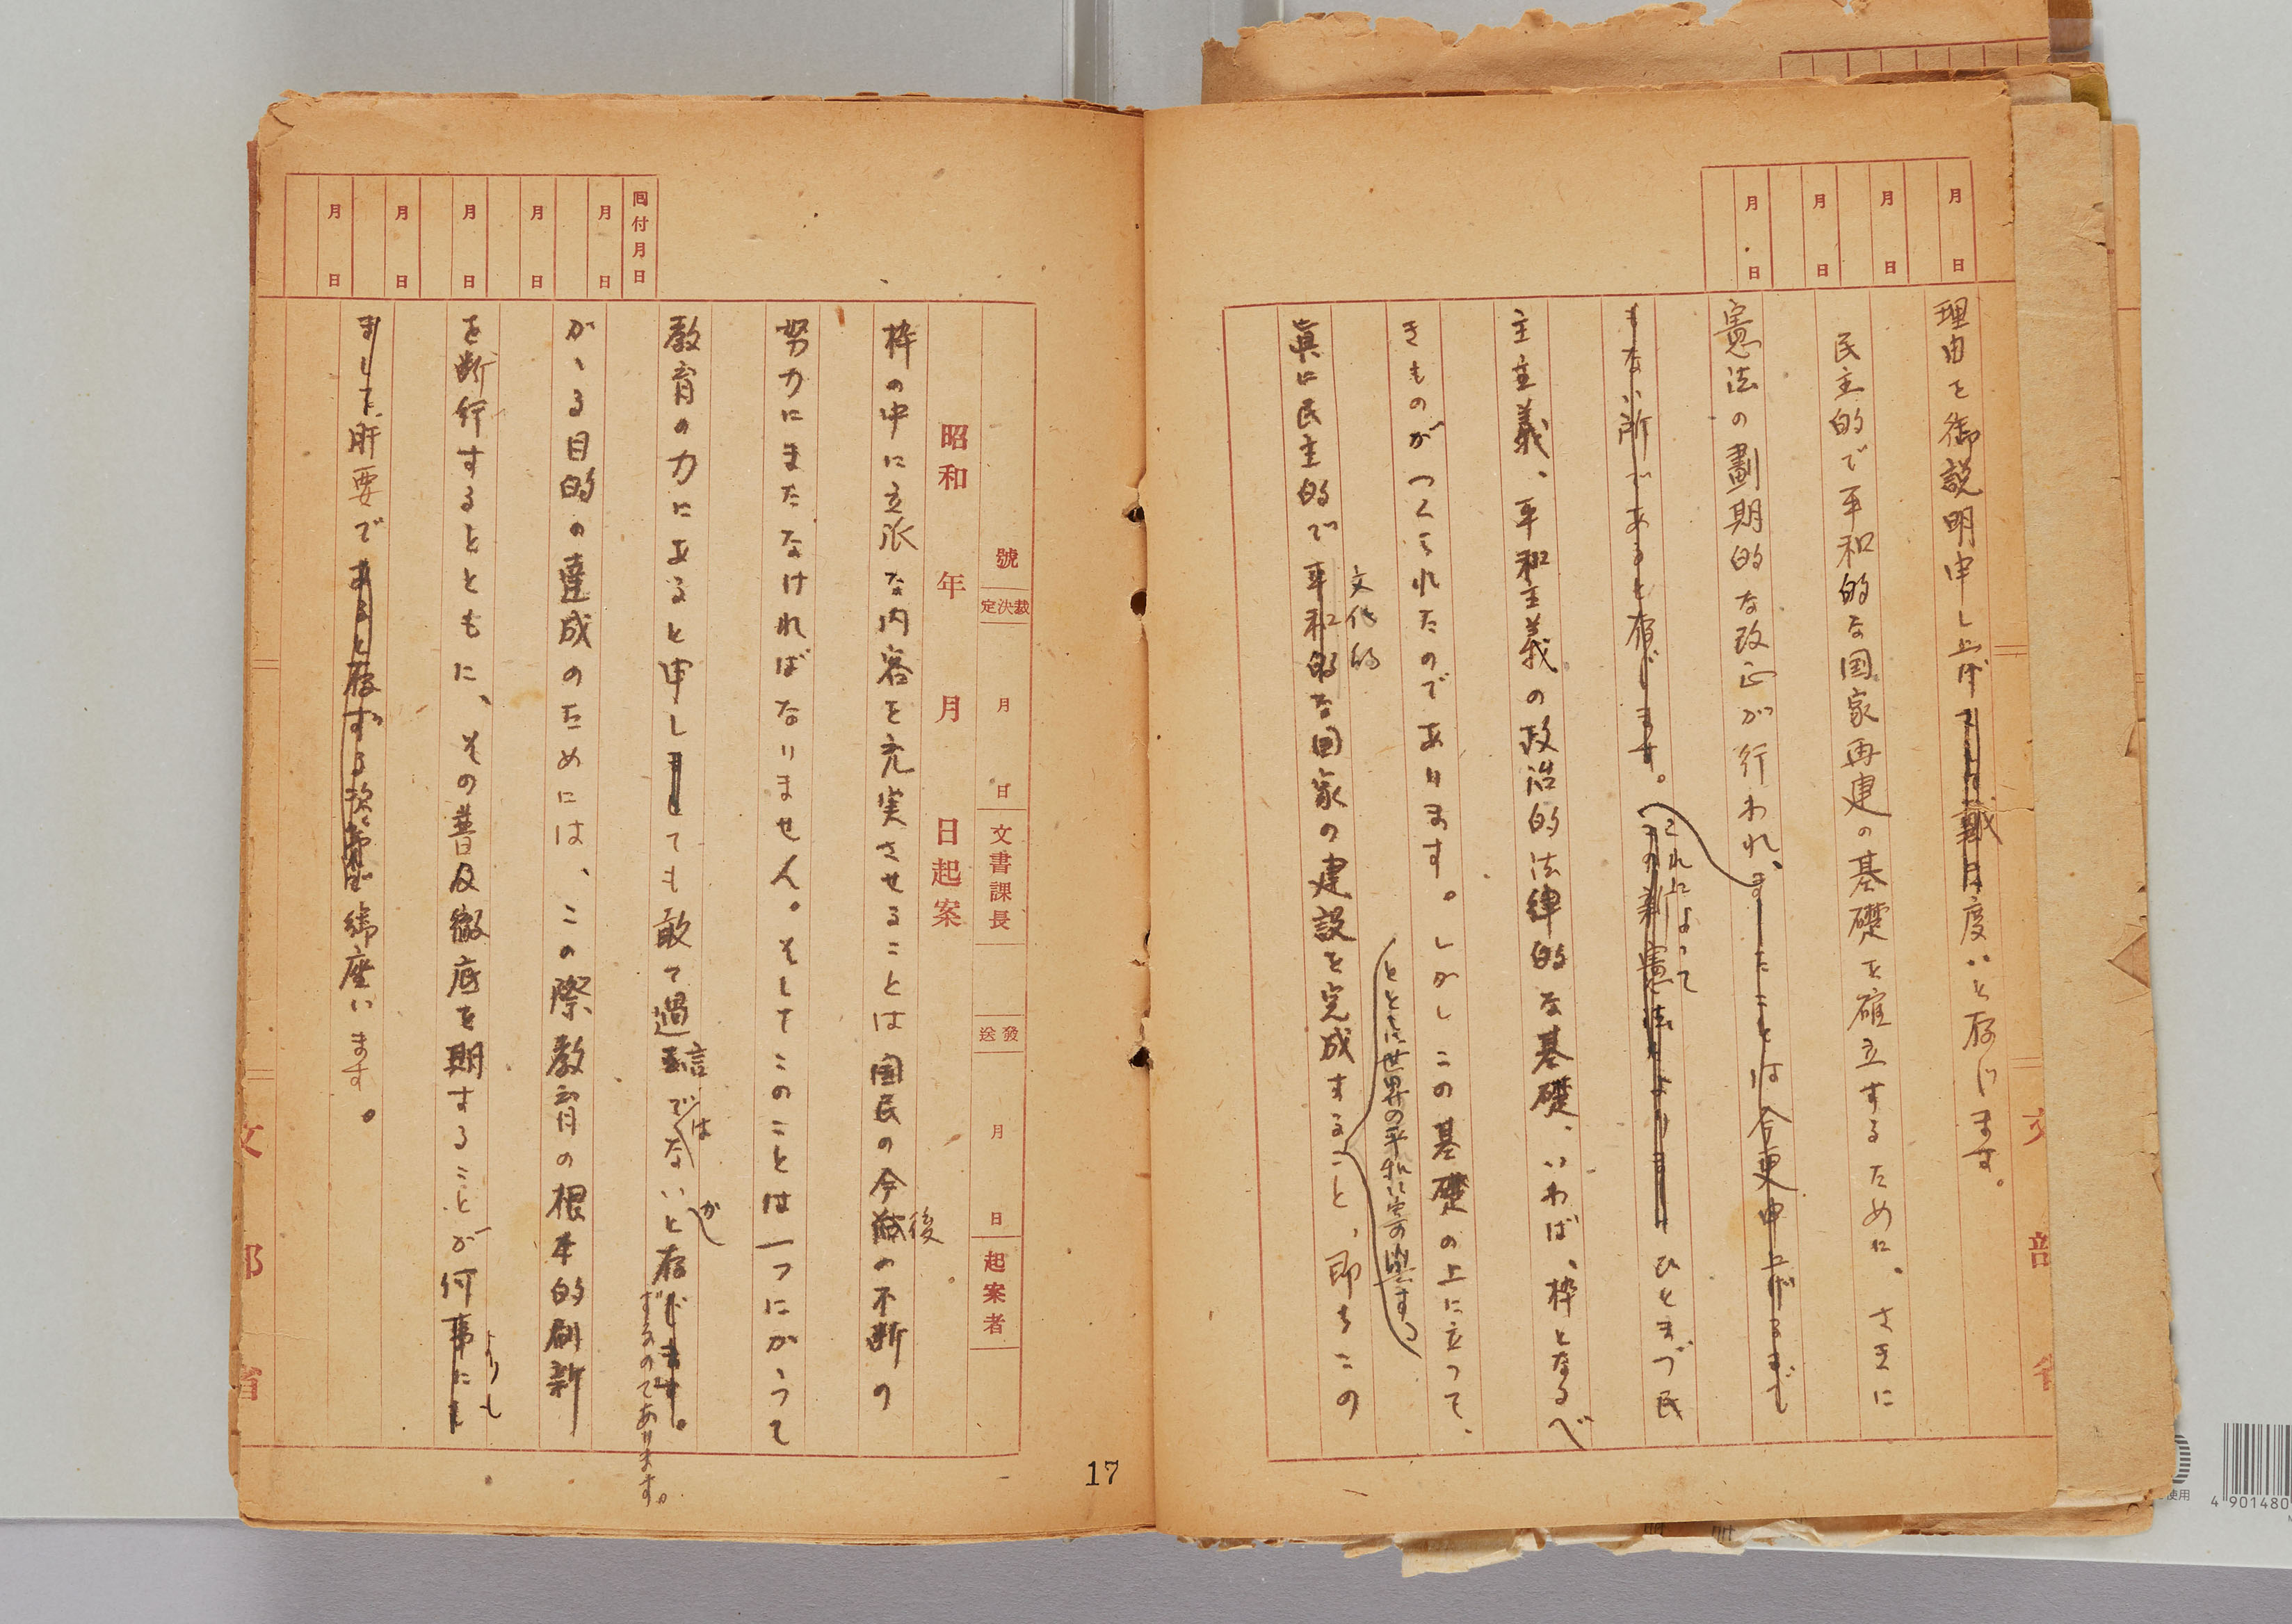 月 日 月 日 月 日 月 日
理由を御説明申し上げて戴き度いと存じます。
民主的で平和的な国家再建の基礎を確立するために、さきに
憲法の劃期的な改正が行われ、ましたことは今更申上げるまで
もない所であると存じます。この新憲法によりまして ひとまづ民
これによって
主主義、平和主義の政治的法律的な基礎、いわば、枠となるべ
きものがつくられたのであります。しかしこの基礎の上に立って、
とともに世界の平和に寄與する
文化的
眞に民主的で平和的な国家の建設を完成すること、即ちこの
文部省
號
裁決定
月 日
文書課長
發送
月 日
起案者
昭和 年 月 日起案
回付月日
月 日 月 日 月 日 月 日 月 日
枠の中に立派な内容を充実させることは国民の今後の不断の
後
努力にまたなければなりません。そしてこのことは一つにかゝって
教育の力にあると申しましても敢て過言でないと存じます。
言
は
かし
ずるのであります。
かゝる目的の達成のためには、この際教育の根本的刷新
を断行するとともに、その普及徹底を期することが何事にも
よりも
まして肝要であると存ずる次第で御座います。
文部省
17
使用
4 901480